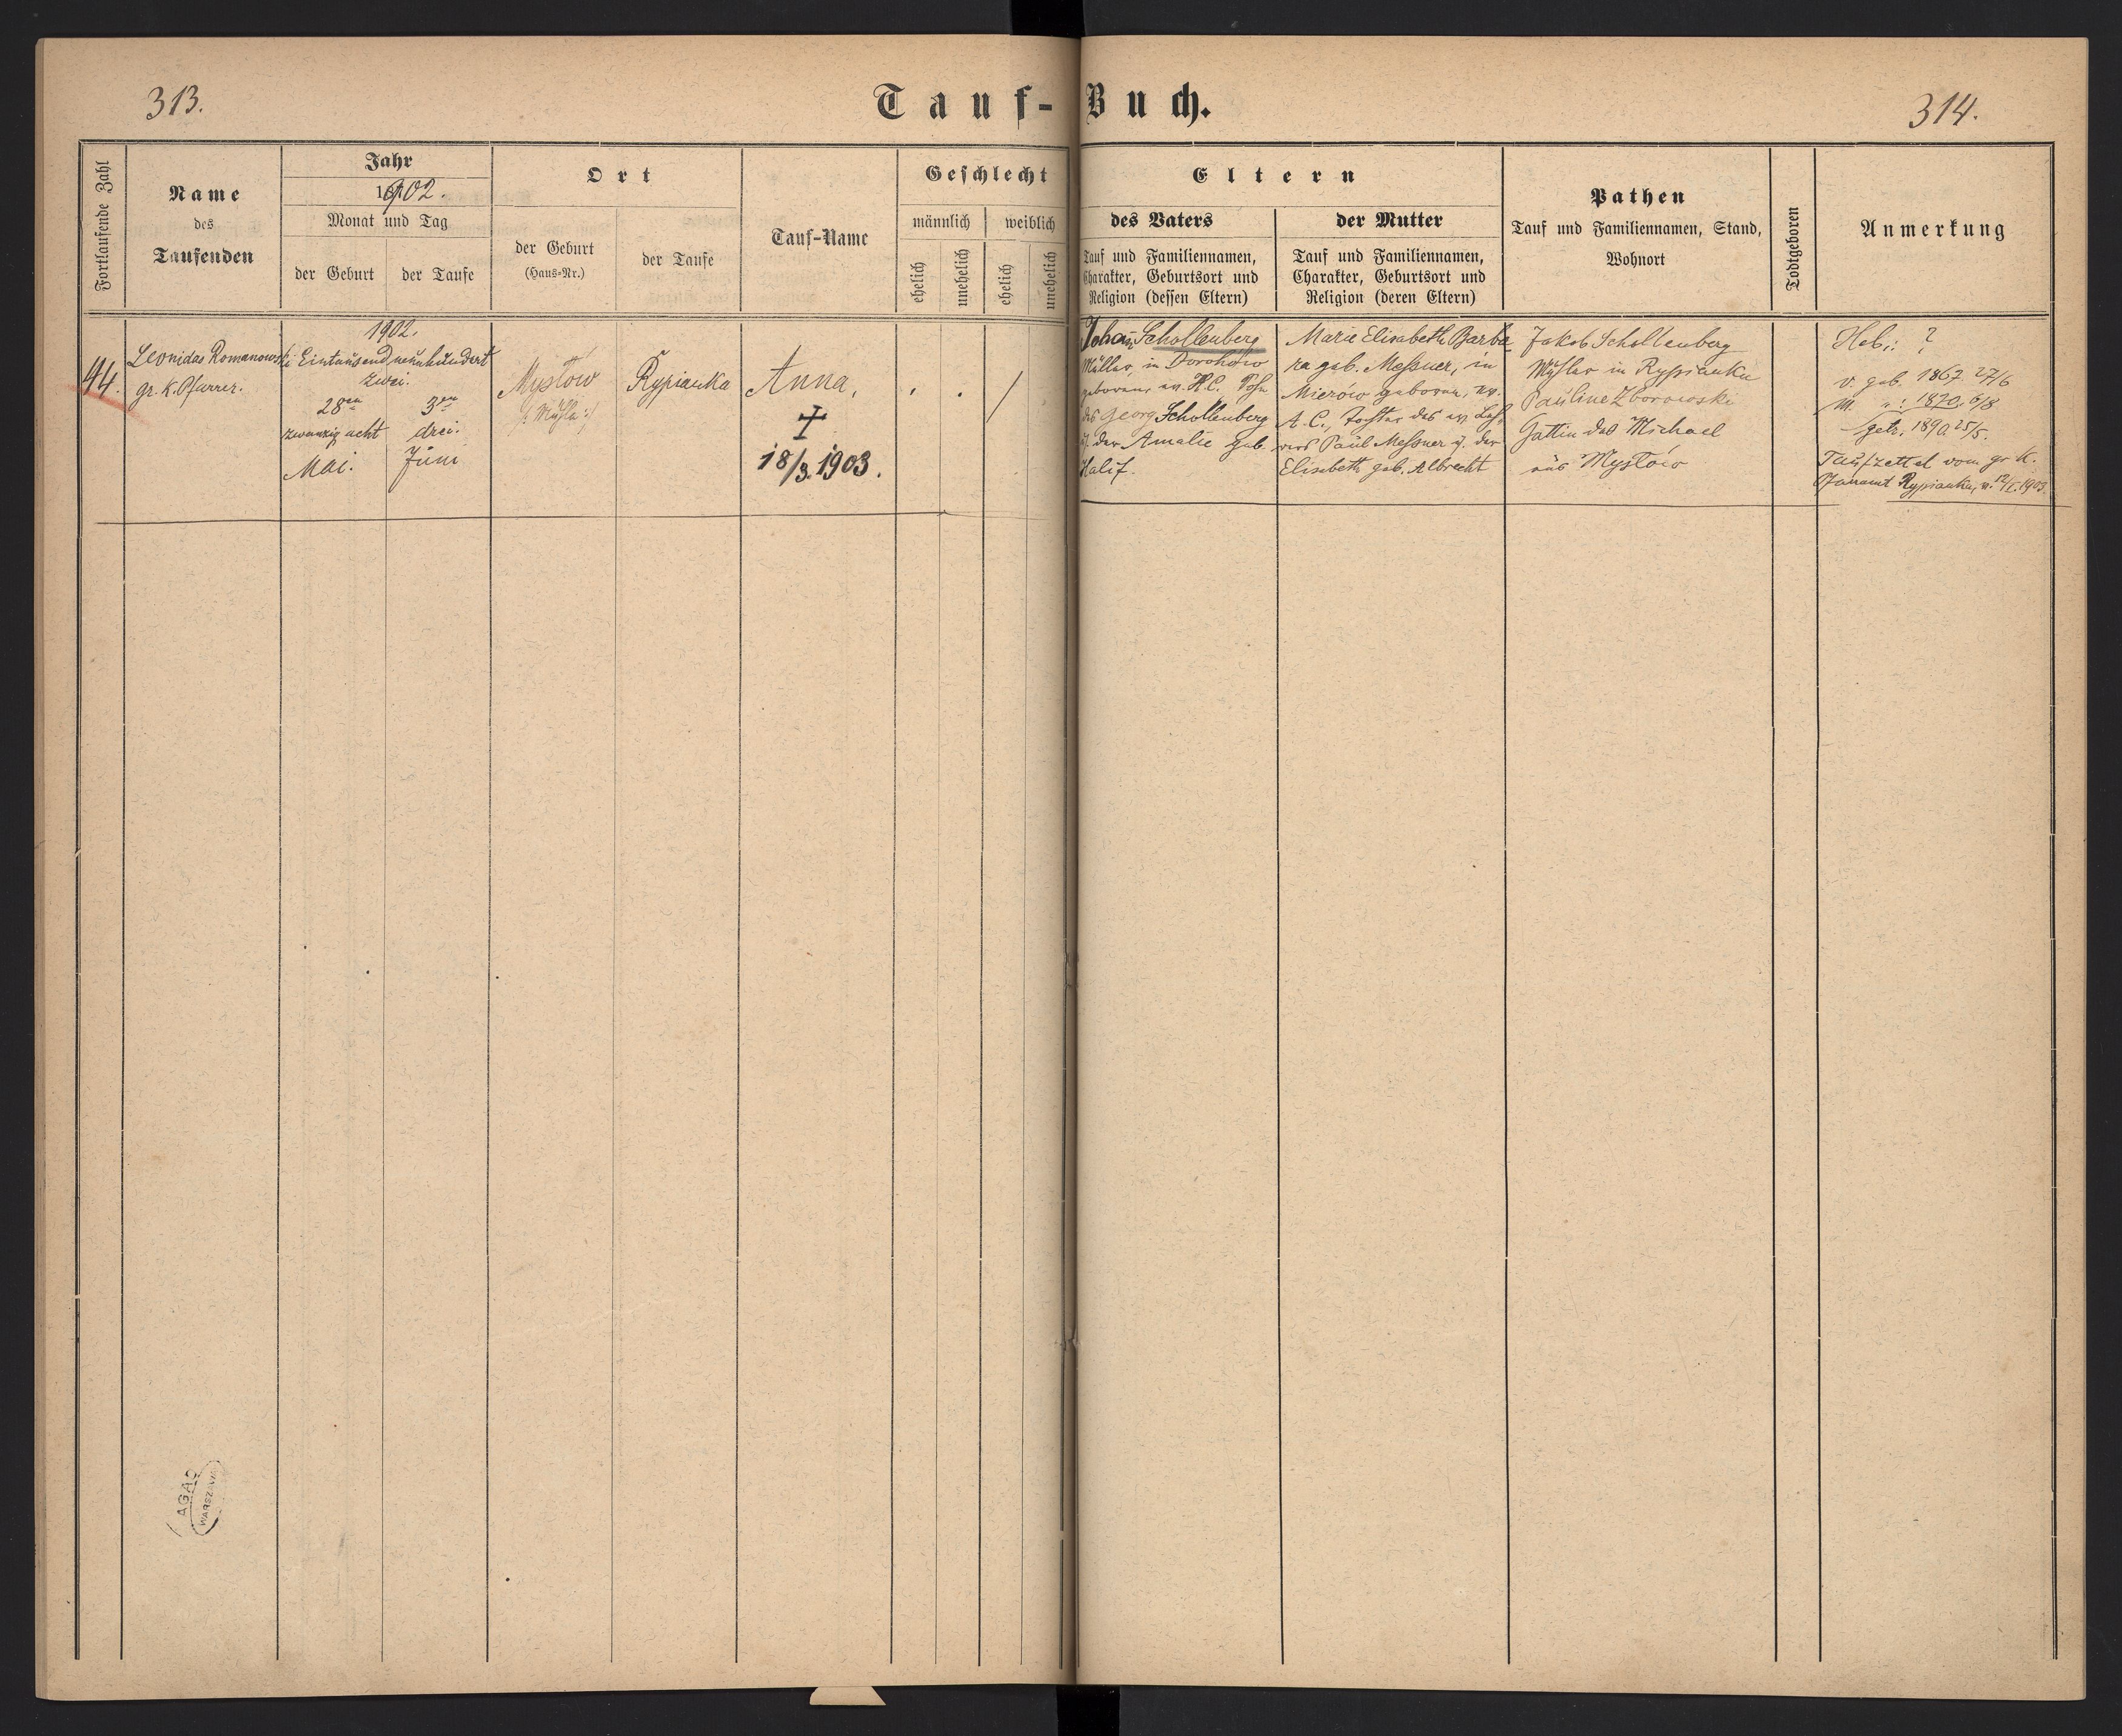 313.
Tauf-Buch.
314.
Fortlaufende Zahl
Name
des
Taufenden
Jahr
1902.
Monat und Tag
der Geburt
der Taufe
Ort
der Geburt
(Haus-Nr.)
der Taufe
Tauf-Name
Geschlecht
männlich
weiblich
ehelich
unehelich
ehelich
unehelich
Eltern
des Vaters
Tauf und Familiennamen,
Charakter, Geburtsort und
Religion (dessen Eltern)
der Mutter
Tauf und Familiennamen,
Charakter, Geburtsort und
Religion (deren Eltern)
Pathen
Tauf und Familiennamen, Stand,
Wohnort
Todtgeboren
Anmerkung
44.
Leonidas Romanowski
gr. K. Pfarrer.
1902.
Eintausendneunhundert
zwei.
28en
zwanzig acht
Mai.
3en
drei.
Juni
Mysłów
/: Mühle :/
Rypianka
Anna,
+
18/3.1903.
Johann Schollenberg
Müller, in Dorohów
geboren, ev. H.C. Sohn
des Georg Schollenberg
u. der Amalie geb.
Halif.
Marie Elisabeth Barba
ra geb. Meßner, in
Mierów geboren, ev.
A. C., Tochter des ev. Leh-
rers Paul Meßner u. der
Elisabeth geb. Albrecht
Jakob Schollenberg
Müller in Rypianka
Pauline Zborowski
Gattin des Michael
aus Mysłów
Heb.: ?
V. geb. 1867 27/6
M. " : 1870. 6/8
getr. 1890. 25/5.
Taufzettel vom gr. K.
Pfarramt Rypianka, v. 12/I. 1903.
AGAD
WARSZAWA